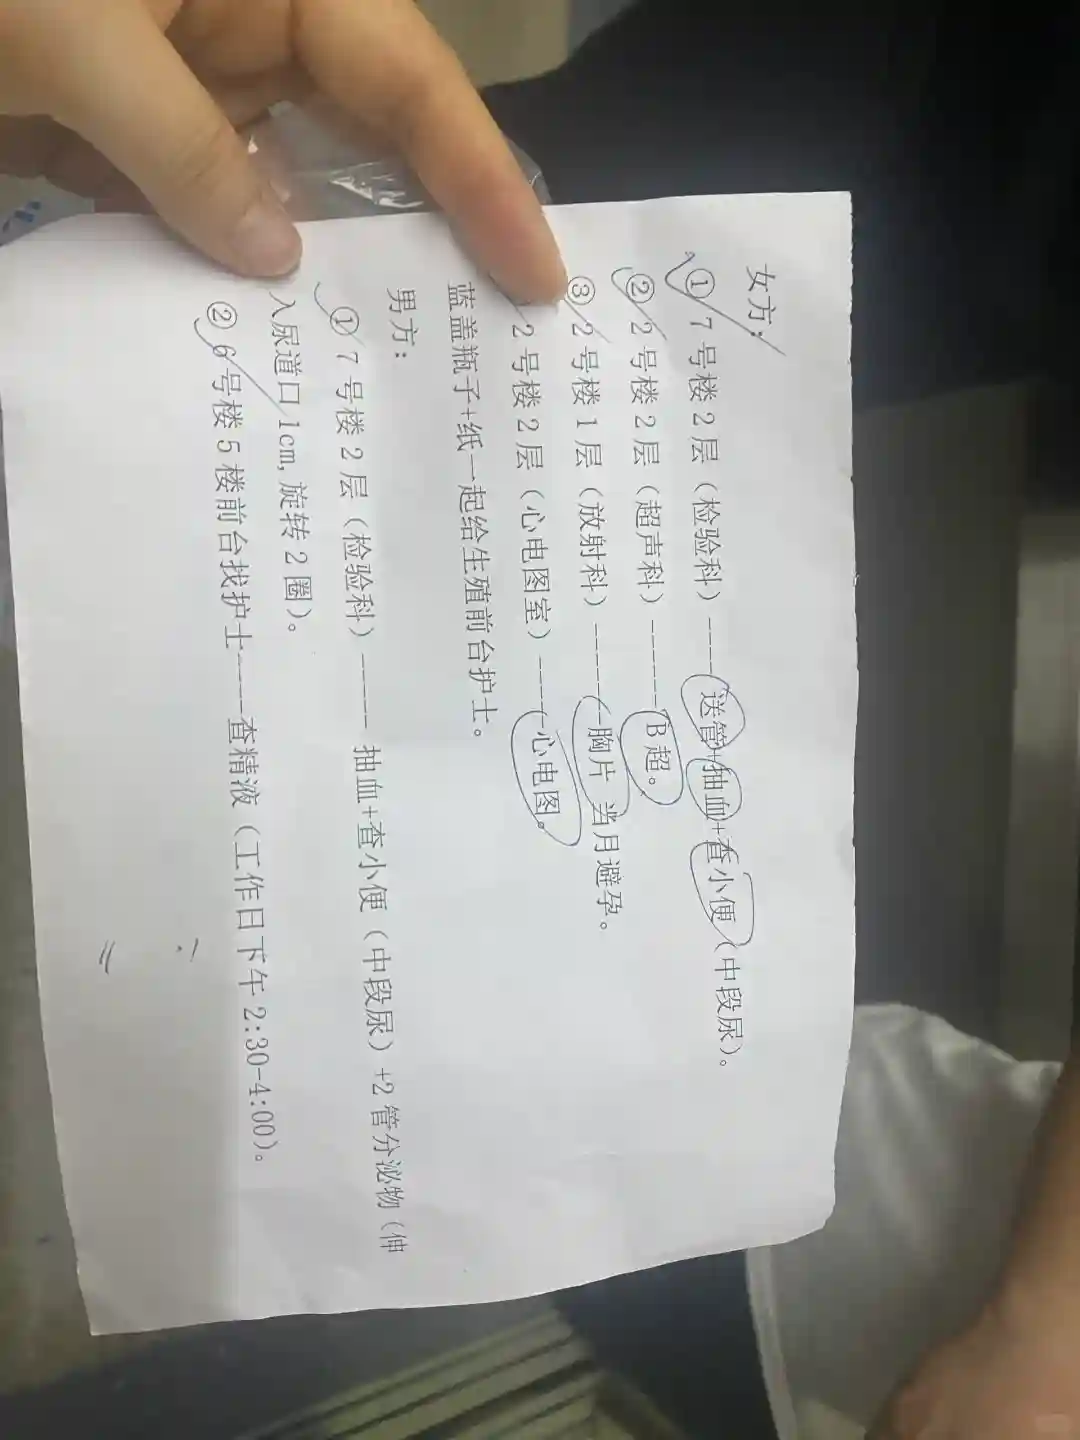 女方:
①7号楼2层(检验科)----送管+抽血+查小便(中段尿)。
②2号楼2层(超声科)------B超。
③2号楼1层(放射科)------胸片 当月避孕。
2号楼2层(心电图室)----心电图。
蓝盖瓶子+纸一起给生殖前台护士。
男方:
①7号楼2层(检验科)-----抽血+查小便(中段尿)+2管分泌物(伸
入尿道口1cm,旋转2圈)。
②6号楼5楼前台找护士----查精液(工作日下午2:30-4:00)。